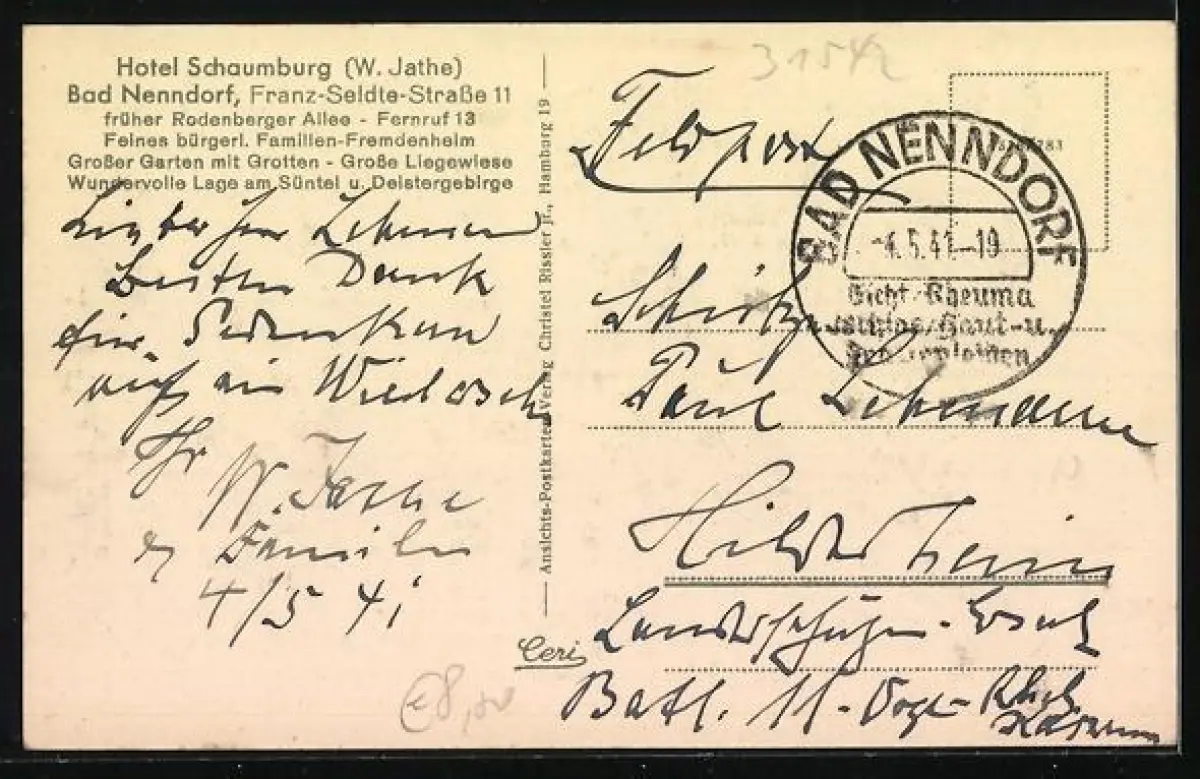 Hotel Schaumburg (W. Jathe)
Bad Nenndorf, Franz-Seldte-Straße 11
früher Rodenberger Allee - Fernruf 13
Feines bürgerl. Familien-Fremdenheim
Großer Garten mit Grotten - Große Liegewiese
Wundervolle Lage am Süntel u. Deistergebirge
Lieber Herr
Besten Dank
für
auf ein
Ihr
W. Jathe
Familie
4/5 41
Ansichts-Postkarten-Verlag Christel Rissler jr., Hamburg 19
Ceri
€8,00
31542
Feldpost
BAD NENNDORF
-4.5.41-19
Gicht, Rheuma
Ischias, Haut- u.
Frauenleiden
Schütze
Paul
Hildesheim
Landesschützen-Ersatz
Batl. 11